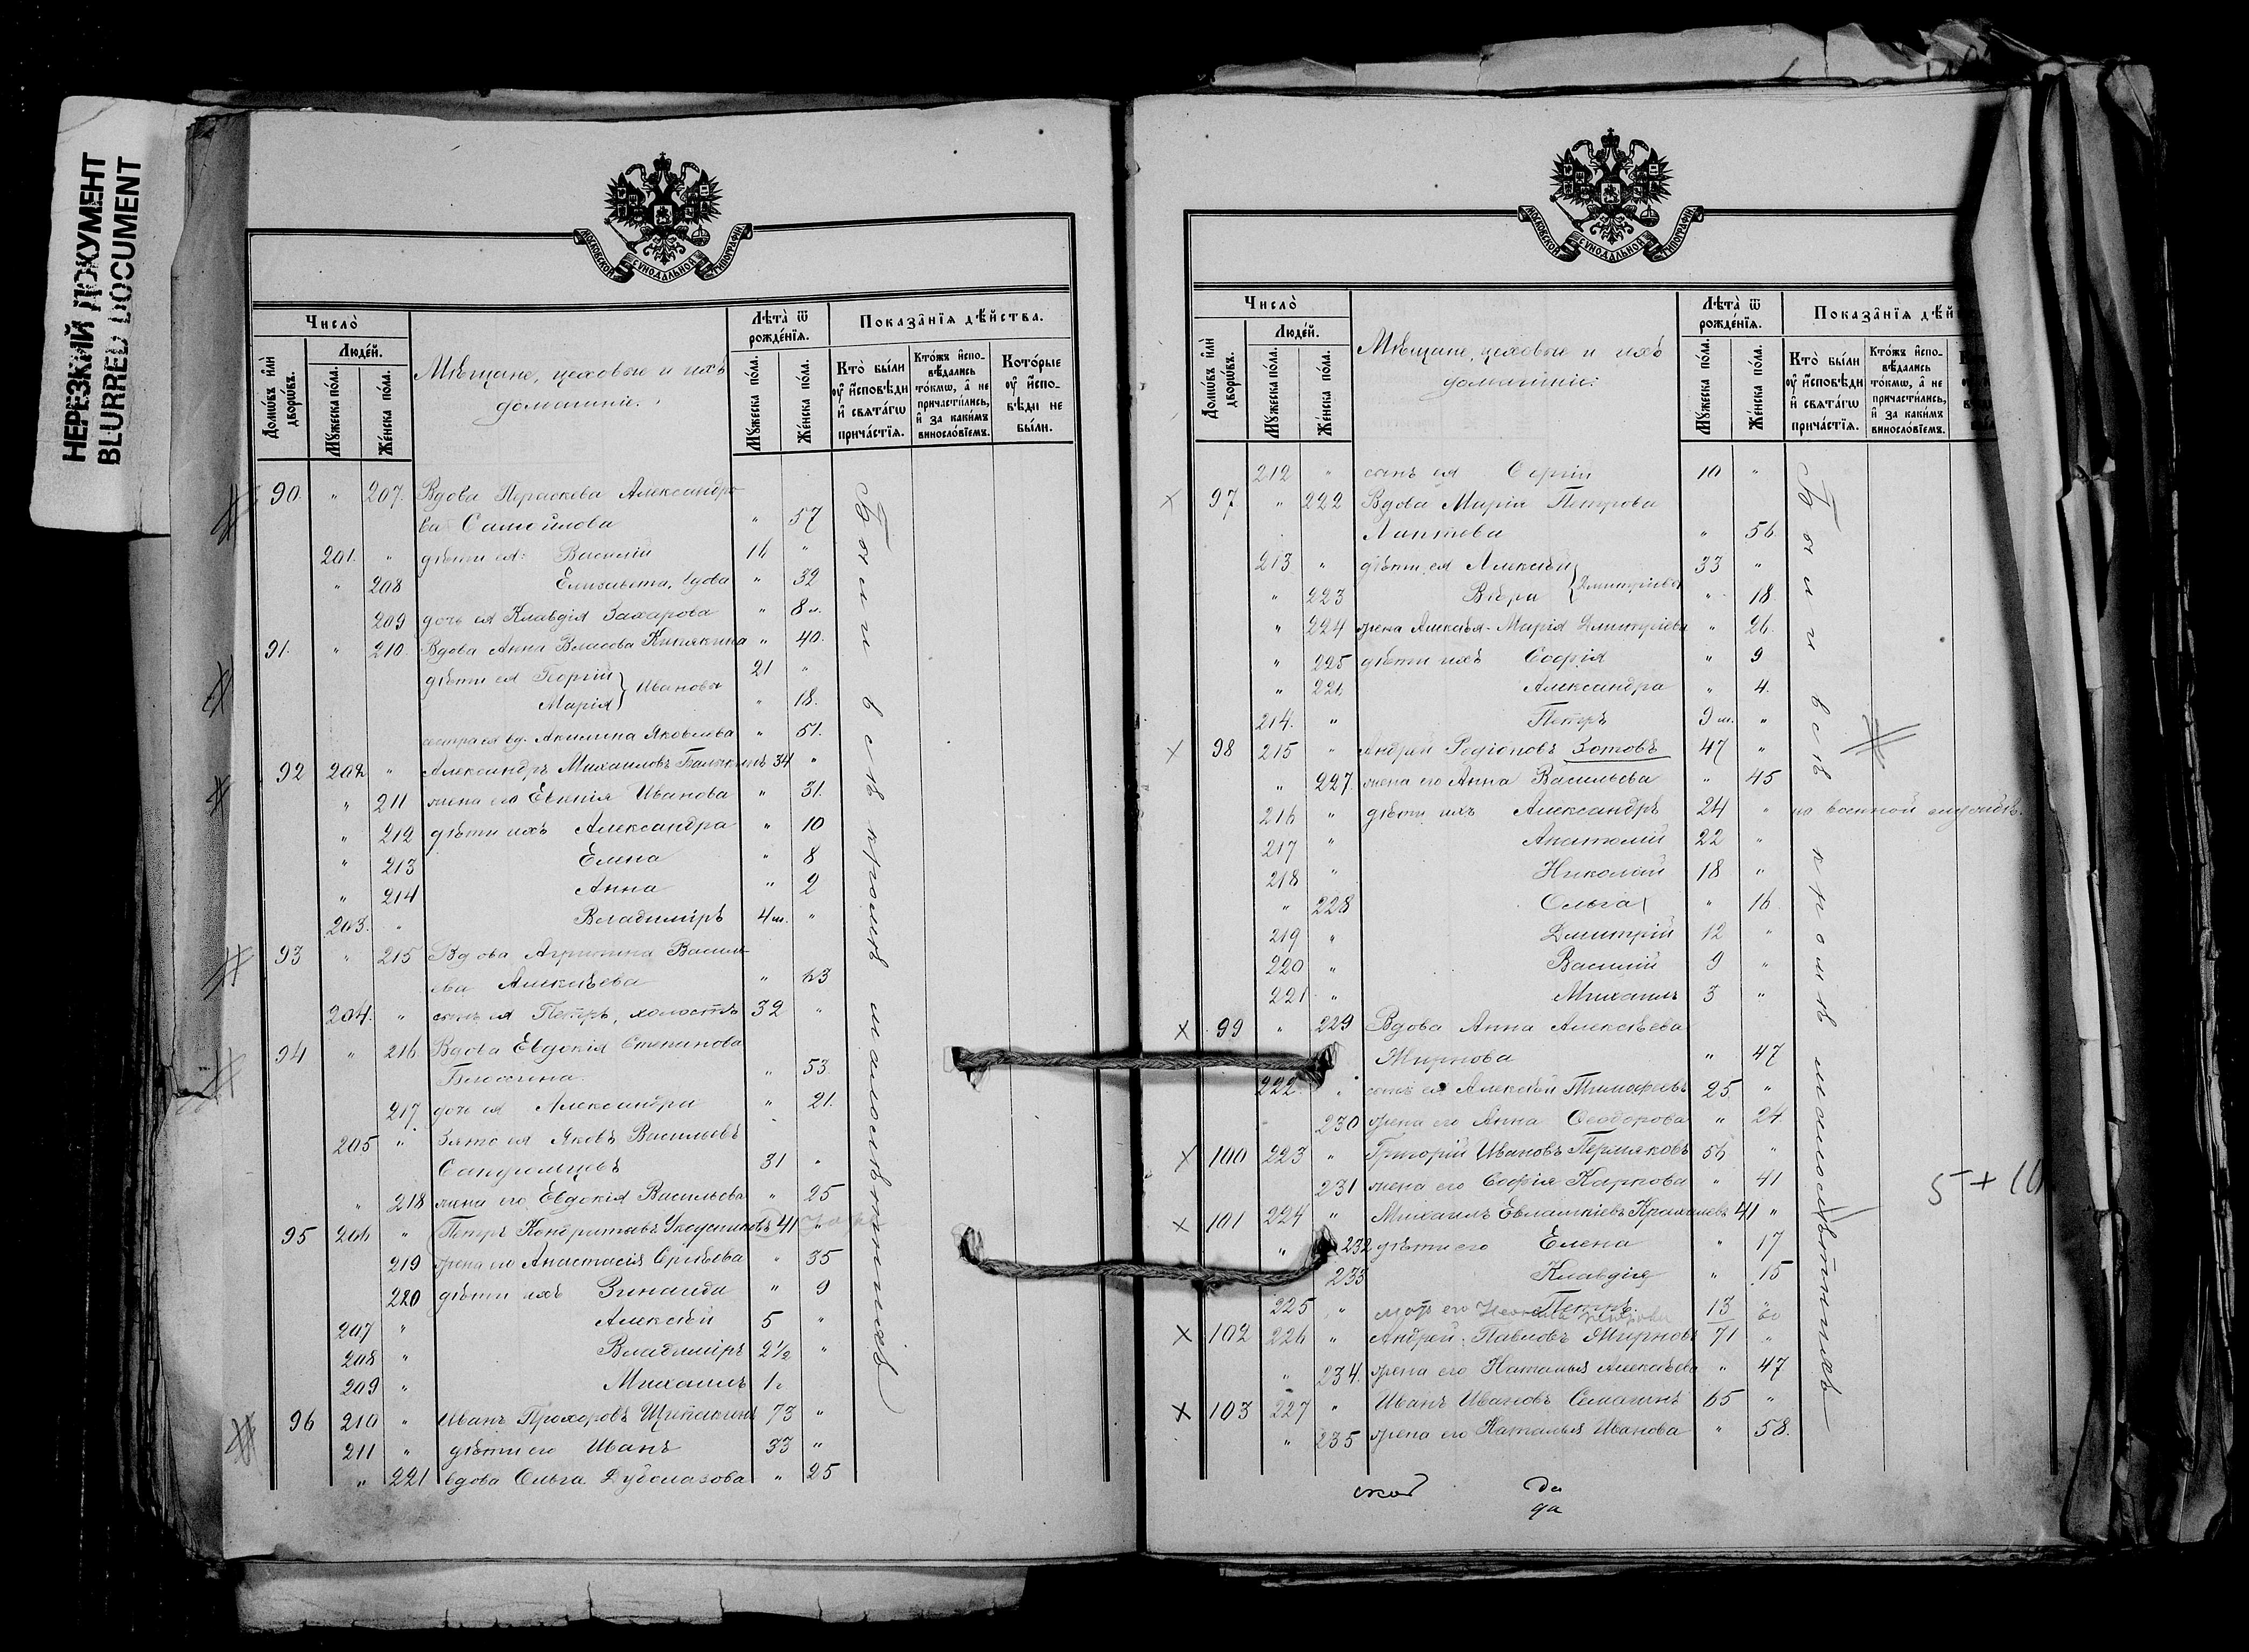 НЕРЕЗКИЙ ДОКУМЕНТ
BLURRED DOCUMENT
МОСКОВСКОЙ СѴНОДАЛЬНОЙ ТИПОГРАФІИ
Число̀
Домѡ́въ и҆лѝ дворѡ́въ.
Люде́й.
Мꙋ́жеска по́ла.
Же́нска по́ла.
Мѣщане, цеховые и ихъ
домашніе.
Лѣта̀ ѿ рожде́нїѧ.
Мꙋ́жеска по́ла.
Же́нска по́ла.
Показа̑нїѧ дѣ́йства.
Кто̀ бы́ли ᲂу҆ и҆́сповѣди и҆ свѧта́гѡ прича́стїѧ.
Кто́жъ и҆спо-вѣ́дались то́кмѡ, а҆ не причасти́лись, и҆ за каки́мъ винослѡ́вїемъ.
Кото́рые ᲂу҆ и҆́спо-вѣди не бы́ли.
90. " 207. Вдова Параскева Александро-
ва Самойлова " 57
201. " дѣти ея: Василій 16 "
" 208 Елизавета, вдова " 32
209 дочь ея Клавдія Захарова " 8
91. " 210. Вдова Анна Власова " 40.
дѣти ея Георгій 21 "
Марія } Ивановы " 18.
сестра ея вд. Акилина Яковлева " 51.
92 202 " Александръ Михаиловъ 34 "
" 211 жена его Евгенія Иванова " 31.
" 212 дѣти ихъ Александра " 10
" 213 Елена " 8
" 214 Анна " 2
203. " Владиміръ 4 м. "
93 " 215 Вдова Агрипина Василь-
ева Алексѣева " 63
204. " сынъ ея Петръ, холостъ 32 "
94 " 216 Вдова Евдокія Степанова
" 53.
217 дочь ея Александра " 21.
205 " Зять ея Яковъ Васильевъ
31 "
" 218 жена его Евдокія Васильева " 25
95 206 " Петръ Кондратьевъ 41 "
219 жена его Анастасія Сергѣева " 35
220 дѣти ихъ Зинаида " 9
207 " Алексѣй 5 "
208 " Владиміръ 2½ "
209 " Михаилъ 1
96 210 " Иванъ Прохоровъ 73 "
211 " дѣти его Иванъ 33 "
" 221 вдова Ольга " 25
Были всѣ кромѣ малолѣтнихъ
МОСКОВСКОЙ СѴНОДАЛЬНОЙ ТИПОГРАФІИ
Число̀
Домѡ́въ и҆лѝ дворѡ́въ.
Люде́й.
Мꙋ́жеска по́ла.
Же́нска по́ла.
Мѣщане, цеховые и ихъ
домашніе:
Лѣта̀ ѿ рожде́нїѧ.
Мꙋ́жеска по́ла.
Же́нска по́ла.
Показа̑нїѧ дѣй
Кто̀ бы́ли ᲂу҆ и҆́сповѣди и҆ свѧта́гѡ прича́стїѧ.
Кто́жъ и҆спо-вѣ́дались то́кмѡ, а҆ не причасти́лись, и҆ за каки́мъ винослѡ́вїемъ.
212 " сынъ ея Сергій 10 "
97 " 222 Вдова Марія Петрова
Лаптева " 56
213 " дѣти ея Алексѣй 33 "
" 223 Вѣра } Дмитріевы " 18
" 224 жена Алексѣя - Марія Димитріева " 26.
" 225 дѣти ихъ Софія " 9
" 226 Александра " 4.
214. " Петръ 9 м. "
98 215 " Андрей Родіоновъ Зотовъ 47 "
" 227. жена его Анна Васильева " 45
216 " дѣти ихъ Александръ 24 " на военной службѣ.
217 " Анатолій 22 "
218 " Николай 18 "
" 228 Ольга " 16
219 " Димитрій 12 "
220 " Василій 9 "
221 " Михаилъ 3 "
99 " 229 Вдова Анна Алексѣева
Жирнова " 47
222. " сынъ ея Алексѣй Тимофеевъ 25 "
230 жена его Анна Ѳеодорова " 24.
100 223 " Григорій Ивановъ Пермяковъ 56 "
231 жена его Софія Карпова " 41
101 224 " Михаилъ 41 "
" 232 дѣти его Елена " 17
233 Клавдія " 15
225 " Петръ. 13 "
мать его 60
102 226 " Андрей Павловъ Жирновъ 71 "
" 234. жена его Наталья Алексѣева " 47
103 227 " Иванъ Ивановъ 65 "
" 235 жена его Наталья Иванова " 58.
Были всѣ кромѣ малолѣтнихъ
5 + 16
да
да